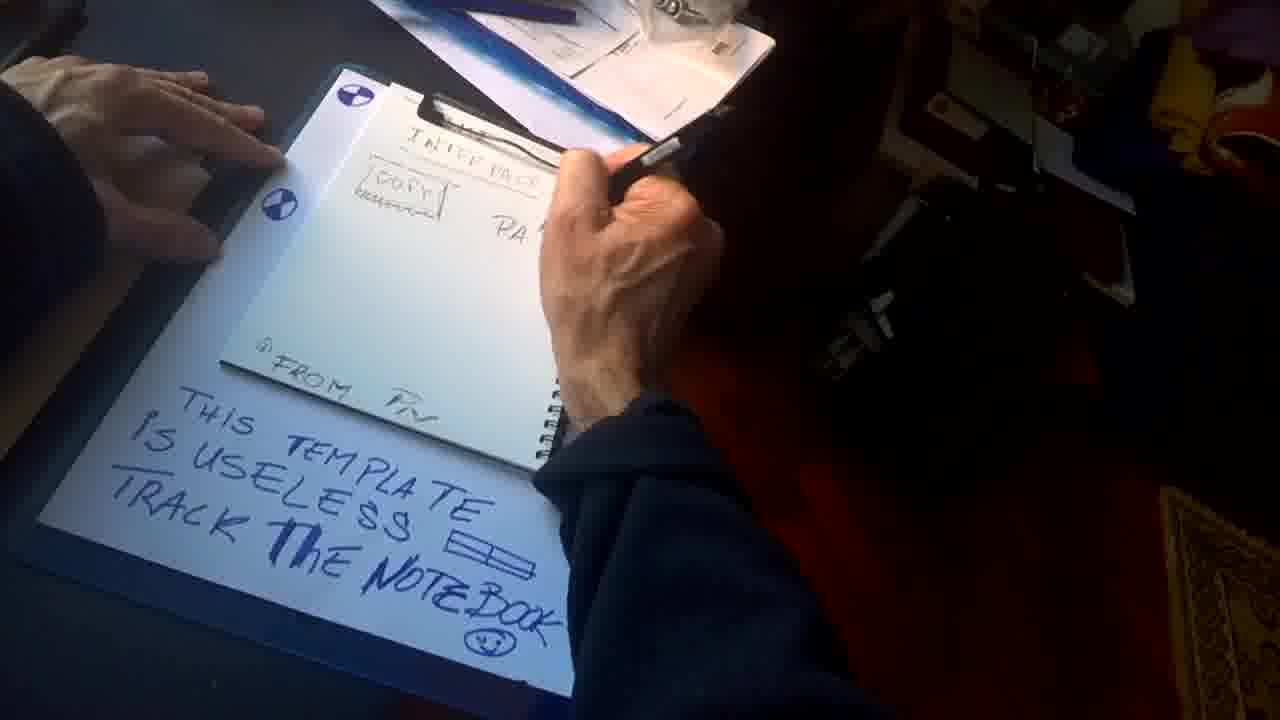 INTERFACE
COPY
① FROM
THIS TEMPLATE
IS USELESS
TRACK THE NOTEBOOK